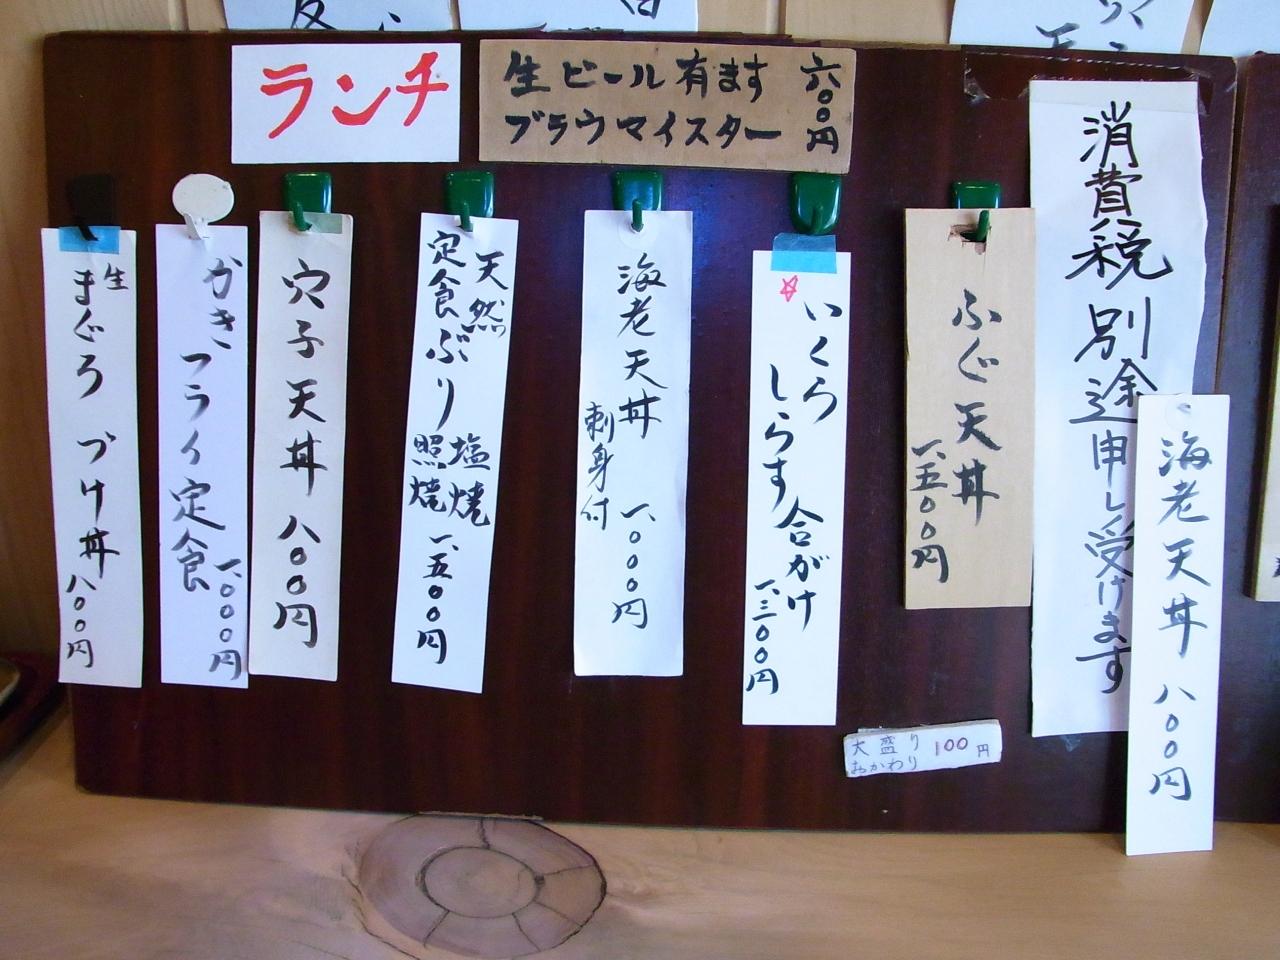 ランチ
生ビール有ます 六〇〇円
ブラウマイスター
消費税別途申し受けます
海老天丼 八〇〇円
ふぐ天丼
一、五〇〇円
☆いくら
しらす
合がけ
一、三〇〇円
海老天丼
刺身付
一、〇〇〇円
天然
定食ぶり
塩焼
照焼
一、五〇〇円
穴子天丼 八〇〇円
かきフライ定食
一、〇〇〇円
生
まぐろ づけ丼
八〇〇円
大盛り
おかわり
100円